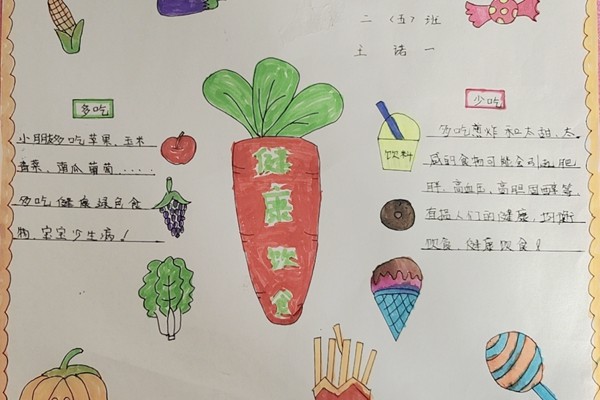 二〈五〉班
王诺一
多吃
小朋友多吃苹果、玉米
青菜、南瓜葡萄......
多吃健康绿色食
物、宝宝少生病！
健康饮食
饮料
少吃
多吃薯炸和太甜、太
咸的食物可能会引起肥
胖、高血压、高胆固醇等
直接人们的健康，均衡
饮食、健康饮食！